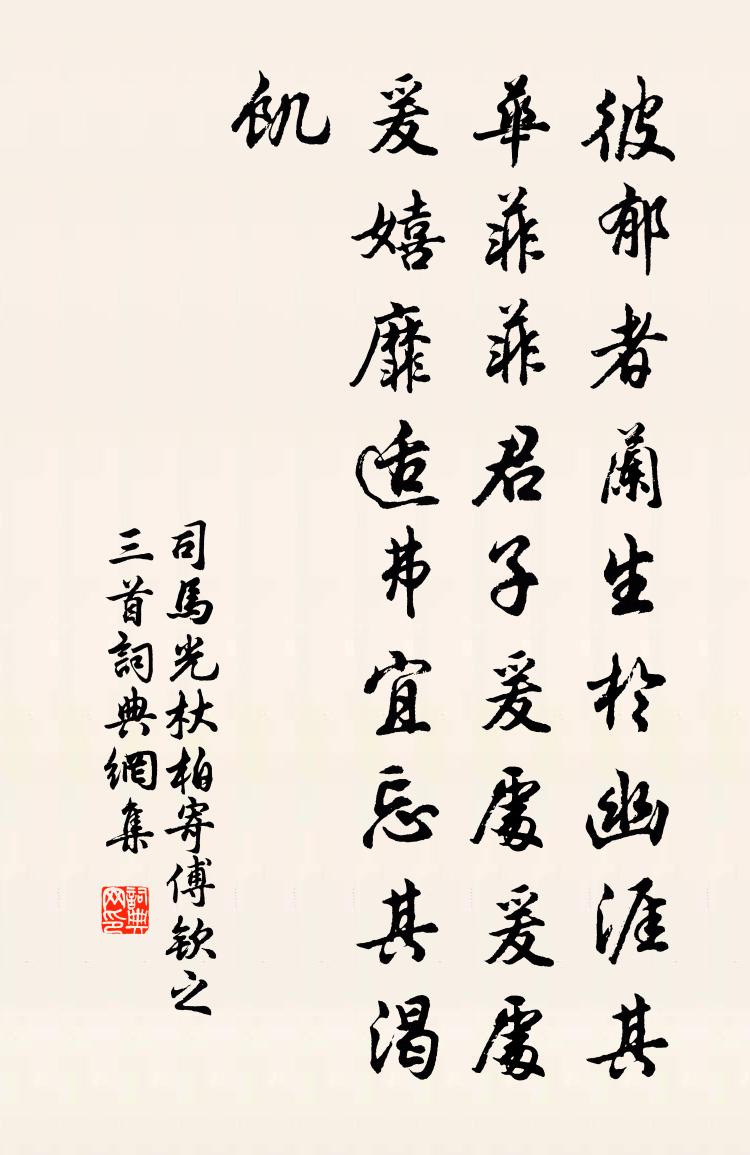 彼郁者蘭生於幽涯其
華菲菲君子爰處爰處
爰嬉靡适弗宜忘其渴
飢
司馬光杕柏寄傅欽之
三首詞典網集
詞典
网印